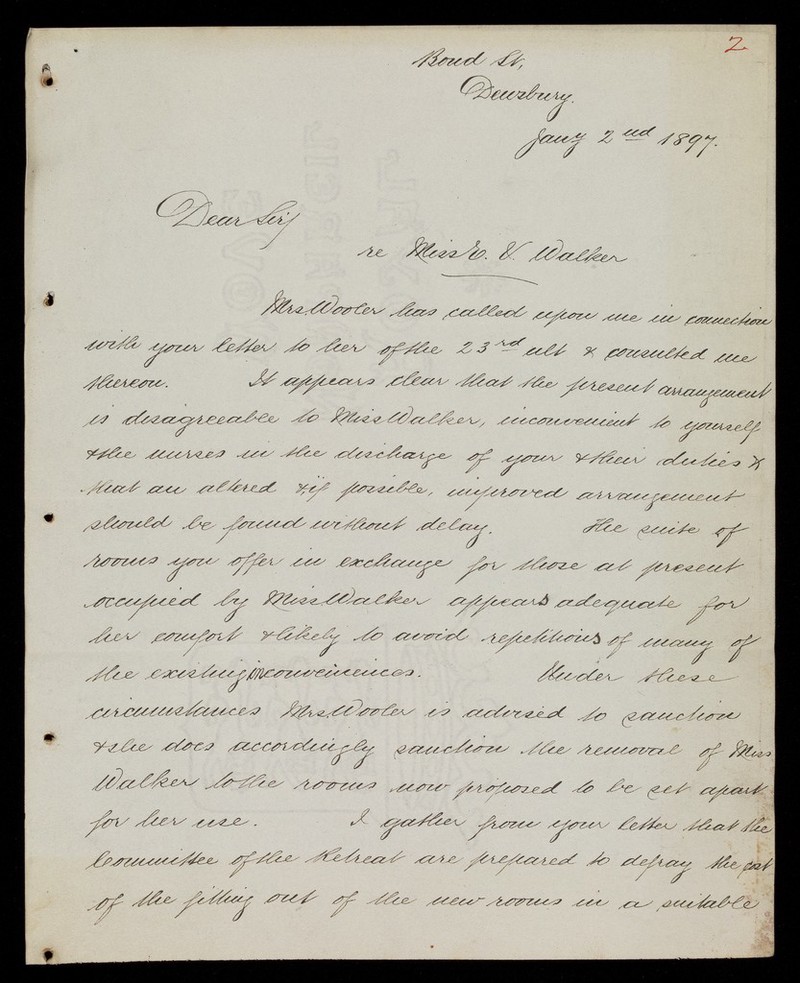 2
Bond St,
Dewsbury.
Jany 2nd 1897.
Dear Sir,
re Miss E. V. Walker
Mrs. Wooler has called upon me in connection
with your letter to her of the 23rd ult & consulted me
thereon. It appears clear that the present arrangement
is disagreeable to Miss Walker, inconvenient to yourself
& the nurses in the discharge of your & their duties &
that an altered & if possible, improved arrangement
should be found without delay. The suite of
rooms you offer in exchange for those at present
occupied by Miss Walker appears adequate for
her comfort & likely to avoid repetitions of many of
the existing inconveniences. Under these
circumstances Mrs. Wooler is advised to sanction
& she does accordingly sanction the removal of Miss
Walker to the rooms now proposed to be set apart
for her use. I gather from your letter that the
Committee of the Retreat are prepared to defray the cost
of the fitting out of the new rooms in a suitable